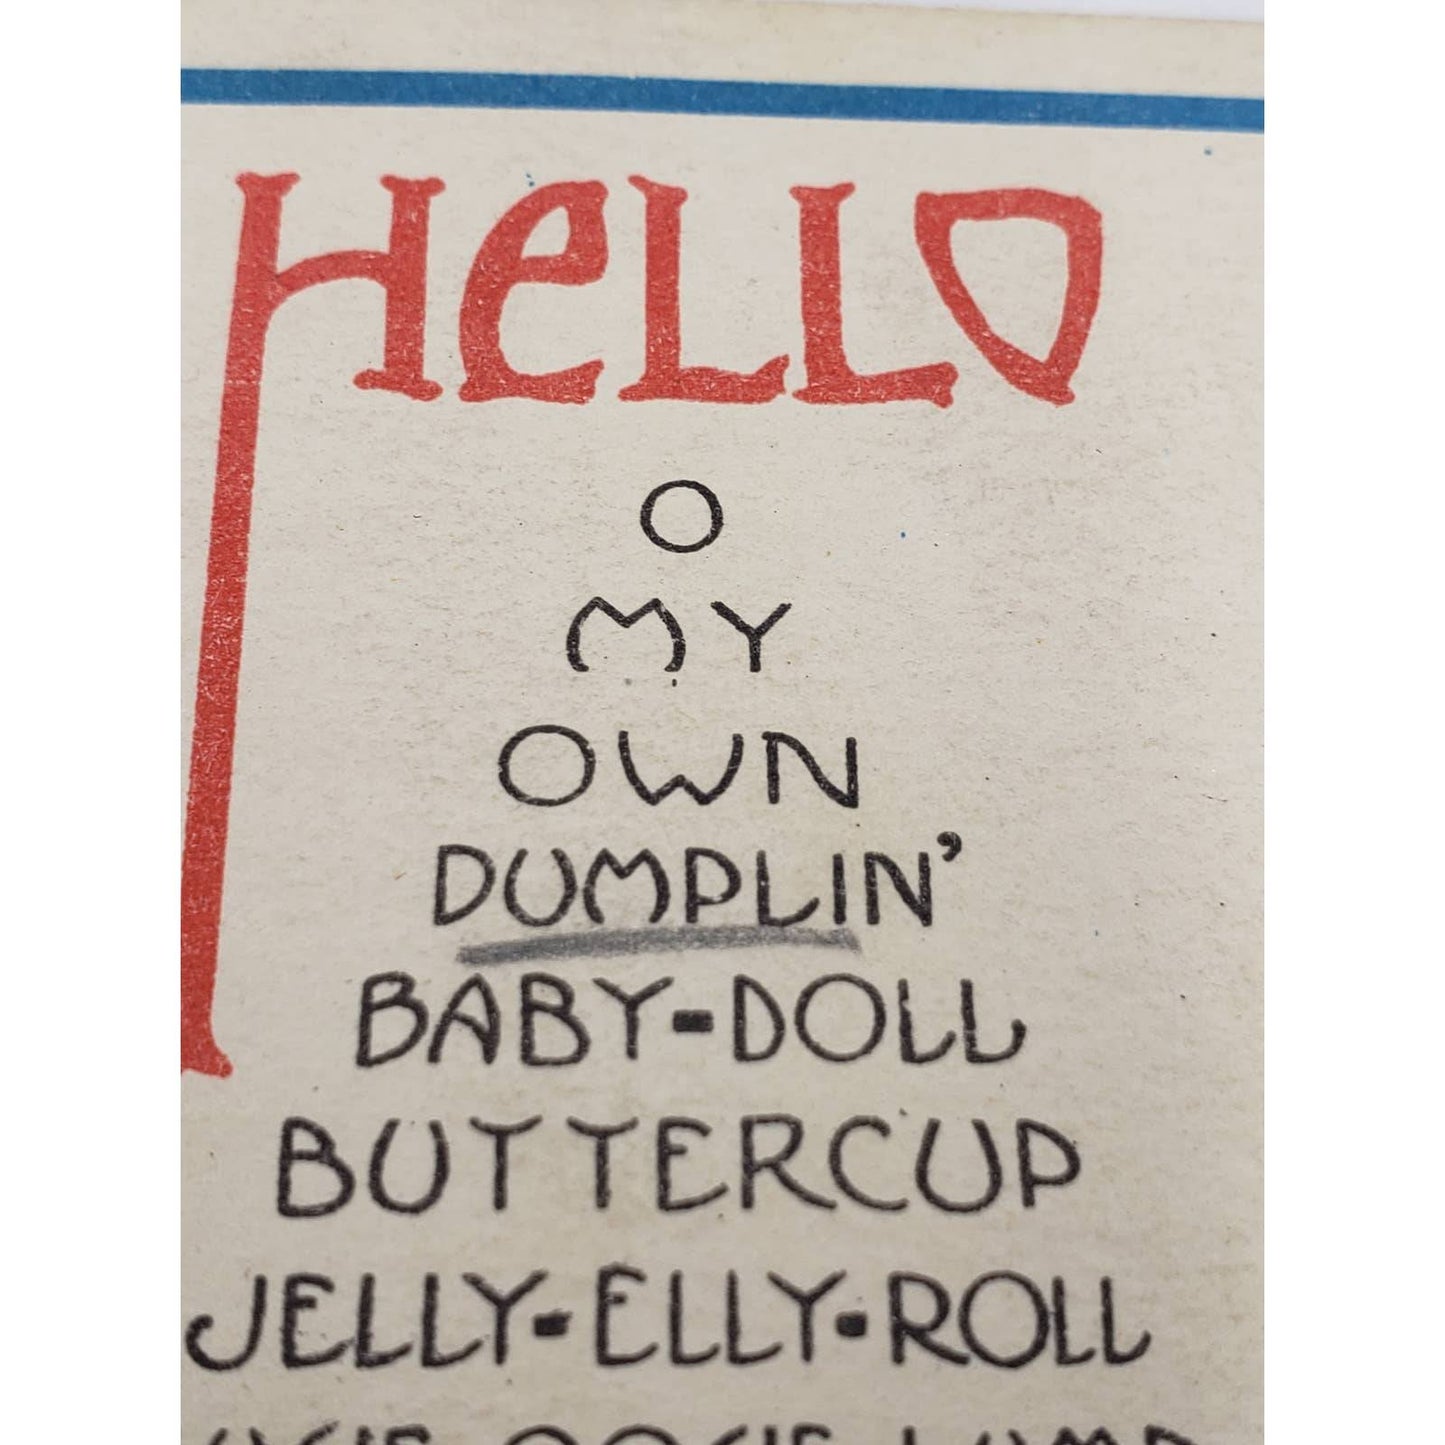 HeLLO
O
MY
OWN
DUMPLIN’
BABY-DOLL
BUTTERCUP
JELLY-ELLY-ROLL